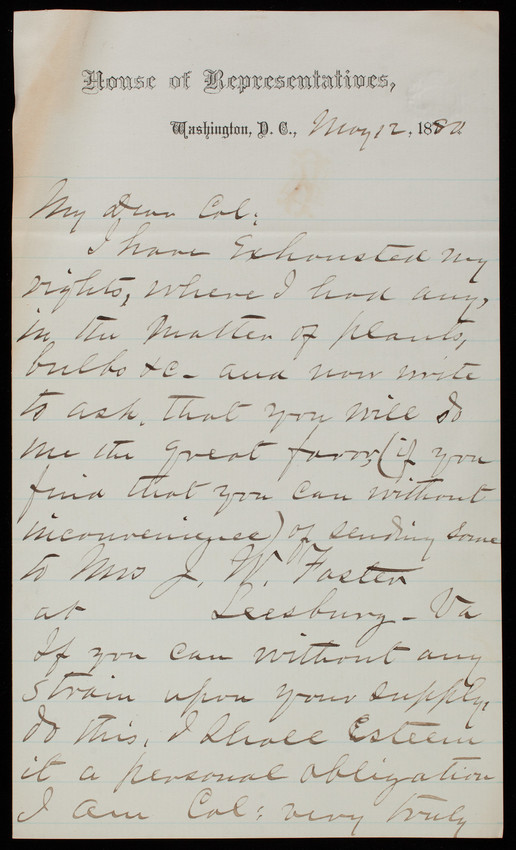 House of Representatives,
Washington, D. C., May 12, 1880.
My Dear Col:
I have Exhausted my
rights, where I had any,
in the matter of plants,
bulbs &c - and now write
to ask, that you will do
me the great favor, (if you
find that you can without
inconvenience) of sending some
to Mrs J. W. Foster
at Leesburg - Va
If you can without any
strain upon your supply,
do this, I shall Esteem
it a personal obligation
I am Col: very truly